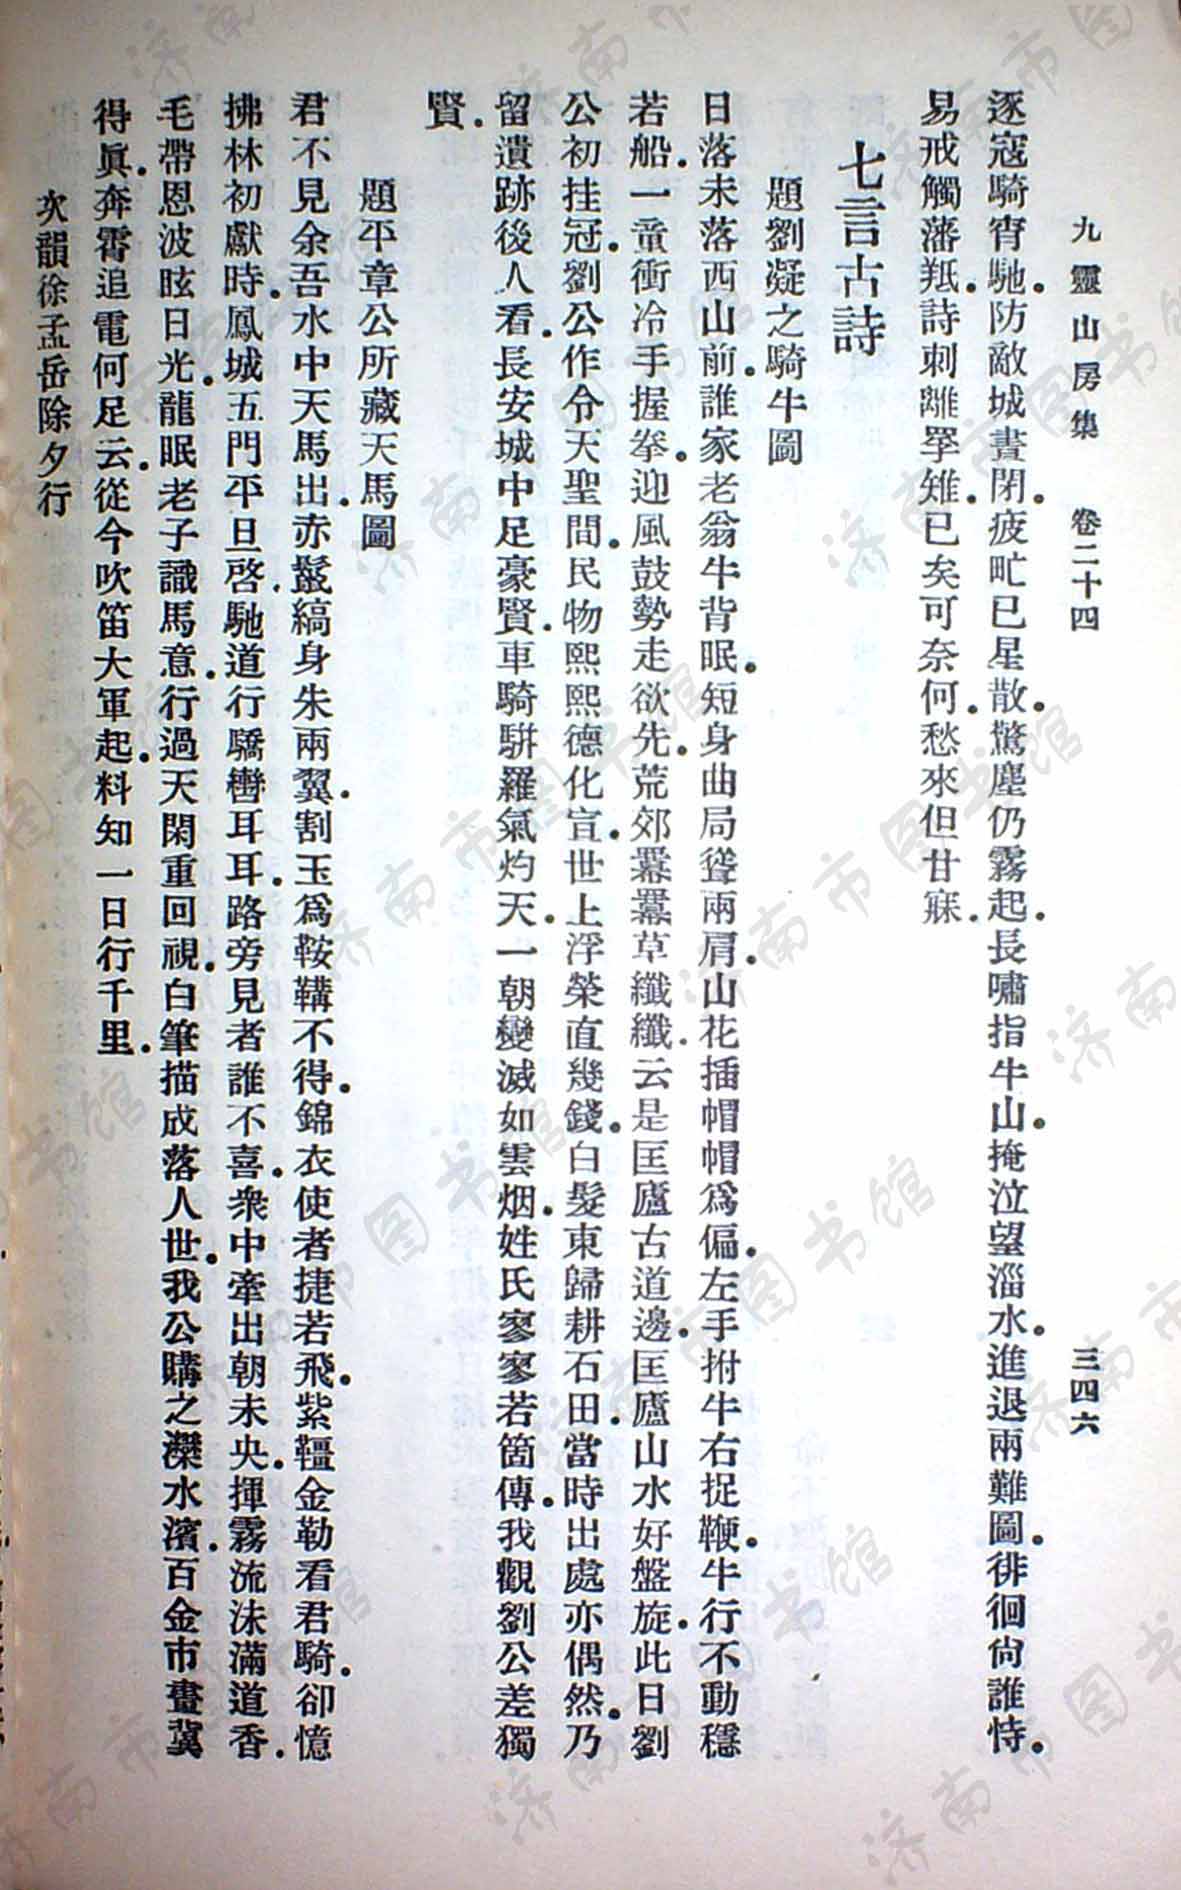 九靈山房集　卷二十四　三四六
逐寇騎宵馳．防敵城晝閉．疲甿已星散．驚塵仍霧起．長嘯指牛山．掩泣望淄水．進退兩難圖．徘徊尙誰恃．
易戒觸藩羝．詩刺離罦雉．已矣可奈何．愁來但甘寐．
七言古詩
題劉凝之騎牛圖
日落未落西山前．誰家老翁牛背眠．短身曲局聳兩肩．山花插帽帽爲偏．左手拊牛右捉鞭．牛行不動穩
若船．一童衝冷手握拳．迎風鼓勢走欲先．荒郊羃羃草纖纖．云是匡廬古道邊．匡廬山水好盤旋．此日劉
公初挂冠．劉公作令天聖間．民物熙熙德化宣．世上浮榮直幾錢．白髮東歸耕石田．當時出處亦偶然．乃
留遺跡後人看．長安城中足豪賢．車騎駢羅氣灼天．一朝變滅如雲烟．姓氏寥寥若箇傳．我觀劉公差獨
賢．
題平章公所藏天馬圖
君不見余吾水中天馬出．赤鬣縞身朱兩翼．割玉爲鞍鞲不得．錦衣使者捷若飛．紫韁金勒看君騎．卻憶
拂林初獻時．鳳城五門平旦啓．馳道行驕轡耳耳．路旁見者誰不喜．衆中牽出朝未央．揮霧流沫滿道香．
毛帶恩波眩日光．龍眠老子識馬意．行過天閑重回視．白筆描成落人世．我公購之灤水濱．百金市畫冀
得眞．奔霄追電何足云．從今吹笛大軍起．料知一日行千里．
次韻徐孟岳除夕行
济南市图书馆